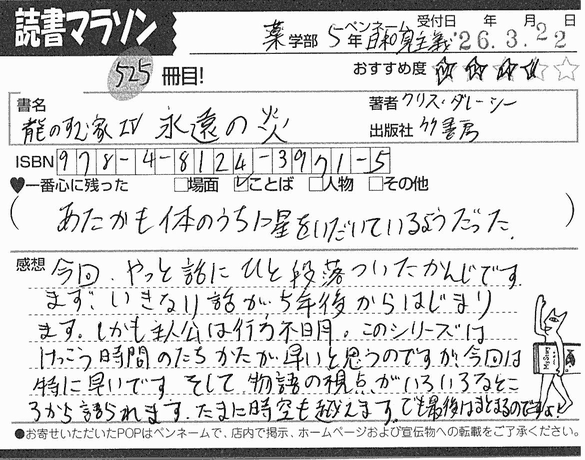 読書マラソン
薬学部 5年 ペンネーム 日和見主義 受付日 年 月 日 '26.3.22
525冊目!
おすすめ度 ★★★★☆
書名
龍のすむ家 IV 永遠の炎
著者 クリス・ダレーシー
出版社 竹書房
ISBN 978-4-8124-3971-5
♥一番心に残った □場面 ☑ことば □人物 □その他
(あたかも体のうちに星をいだいているようだった。)
感想 今回、やっと話にひと段落ついたかんじです。
まず、いきなり話が、5年後からはじまり
ます。しかも主人公は行方不明。このシリーズは
けっこう時間のたちかたが早いと思うのですが、今回は
特に早いです。そして、物語の視点がいろいろなとこ
ろから語られます。たまに時空も越えます。でも最後はまとまるのですよ
●お寄せいただいたPOPはペンネームで、店内で掲示、ホームページおよび宣伝物への転載をご了承ください。